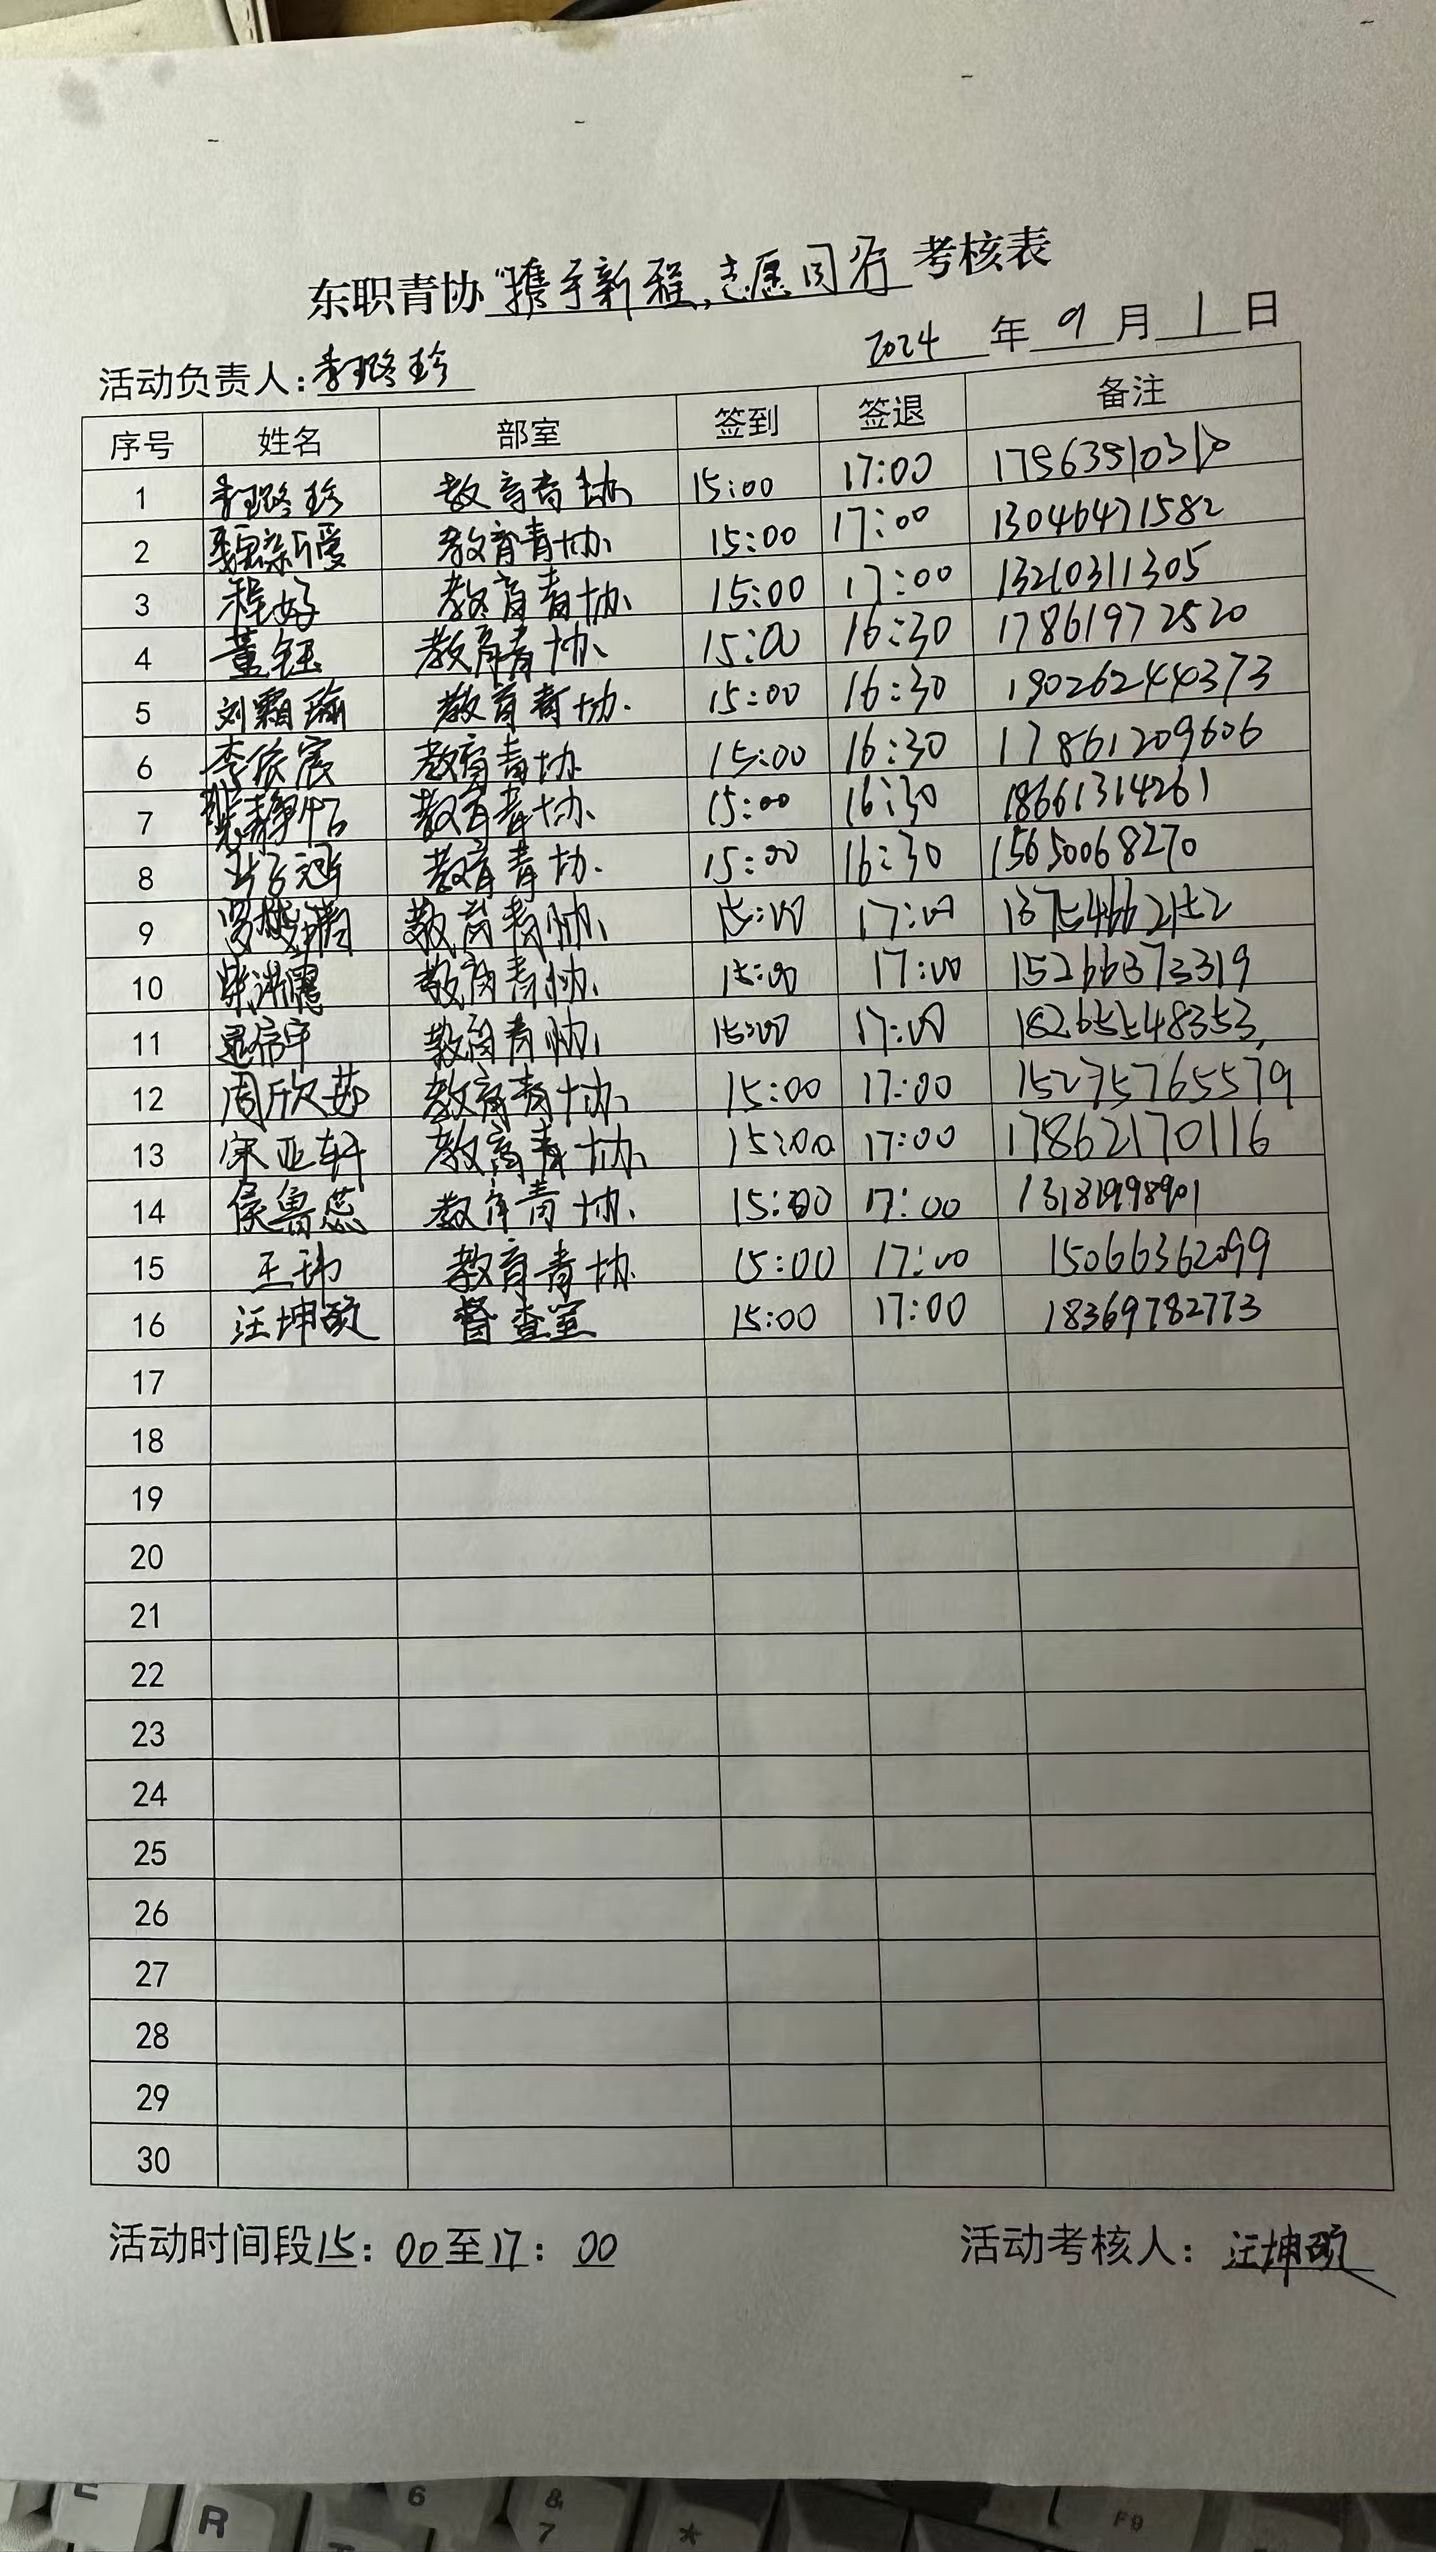 东职青协"携手新程,志愿同行 考核表
2024 年 9 月 1 日
活动负责人:李璐珍
序号 姓名 部室 签到 签退 备注
1 李璐珍 教育青协 15:00 17:00
2 教育青协 15:00 17:00 13046471582
3 程好 教育青协 15:00 17:00 13210311305
4 董钰 教育青协 15:00 16:30 17861972520
5 刘霜瑜 教育青协. 15:00 16:30 19026244373
6 李依宸 教育青协 15:00 16:30 17861209606
7 教育青协 15:00 16:30 18661314261
8 教育青协. 15:00 16:30 15650068270
9 教育青协 15:00 17:00 13754662152
10 教育青协 15:00 17:00 15266373319
11 教育青协 15:00 17:00 18265548353
12 周欣茹 教育青协 15:00 17:00 15275765579
13 宋亚轩 教育青协 15:00 17:00 17862170116
14 侯鲁蕊 教育青协 15:00 17:00
15 王玮 教育青协 15:00 17:00 15066362099
16 汪坤硕 督查室 15:00 17:00 18369782773
17
18
19
20
21
22
23
24
25
26
27
28
29
30
活动时间段15:00至17:00 活动考核人:汪坤硕
E
R
6
&
7
*
F9